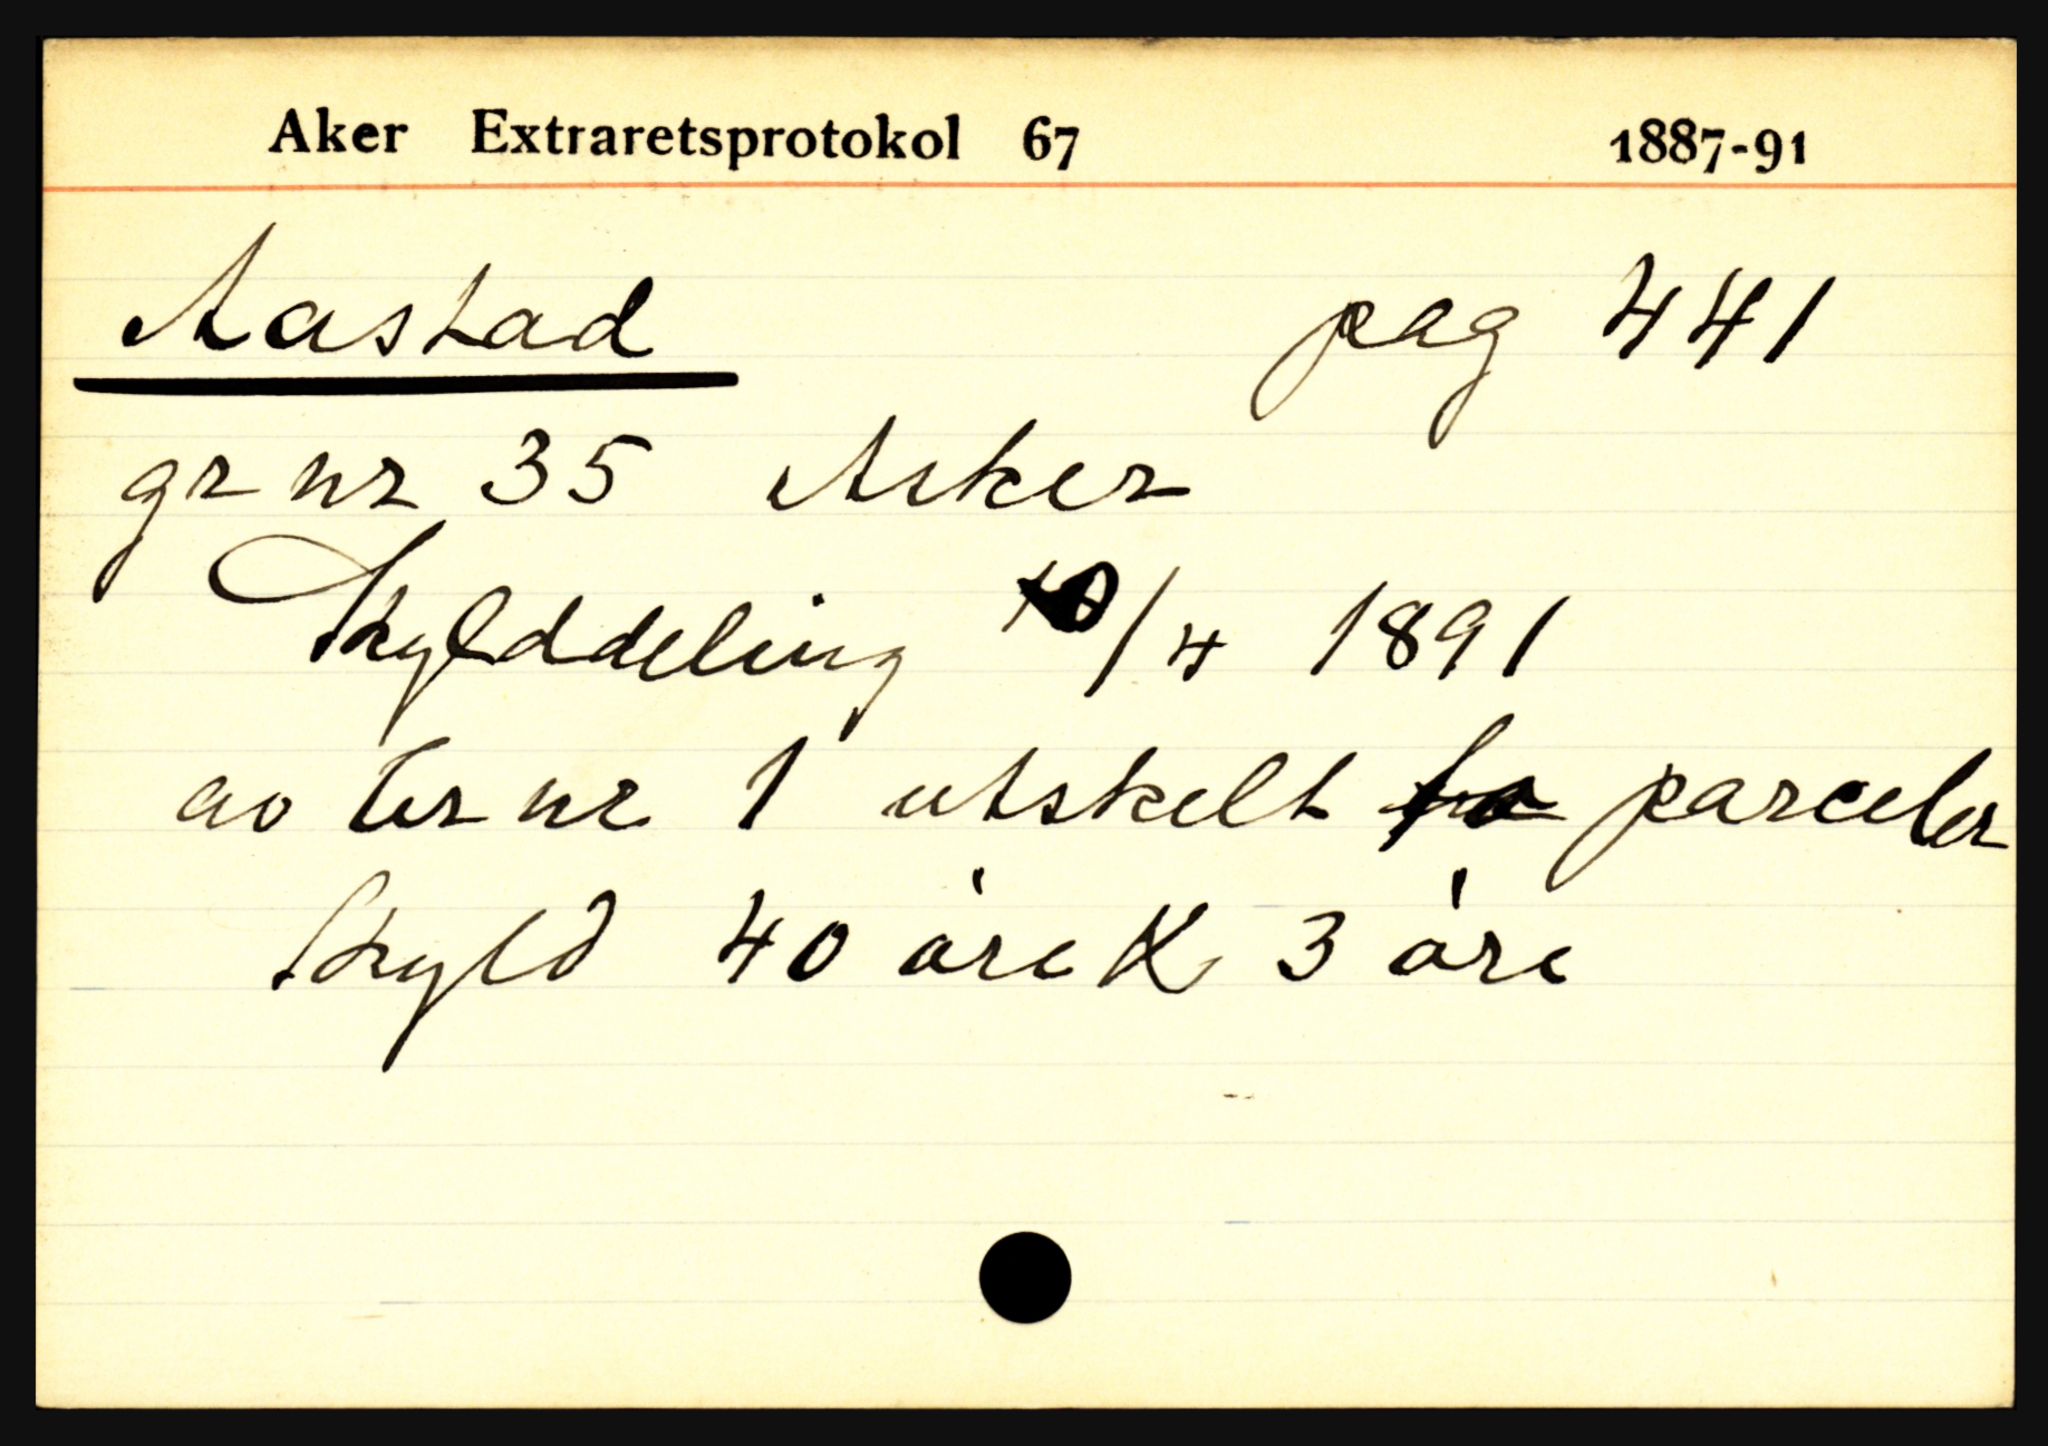 Aker Extraretsprotokol 67 1887-91
Aastad pag 441
gr nr 35 Asker
Skylddeling 10/4 1891
av br nr 1 utskelt parceler
skyld 40 øre & 3 øre